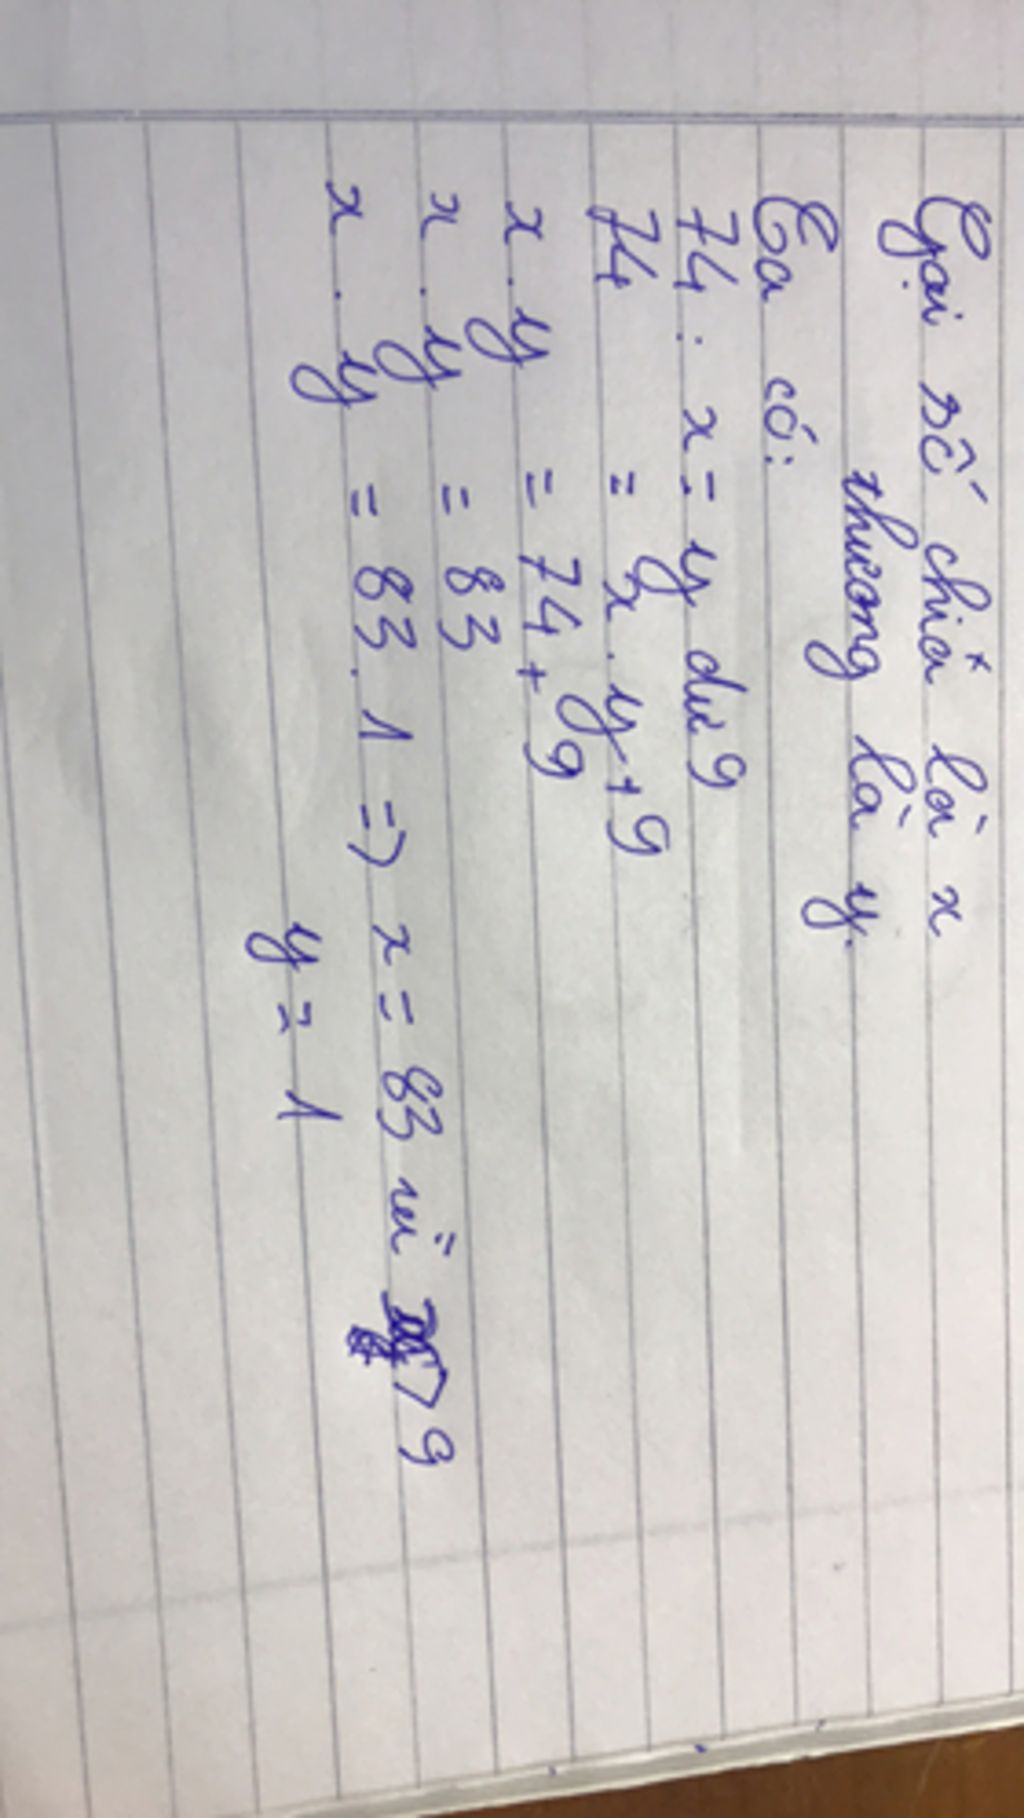 Gọi số chia là x
thương là y.
Ta có:
74 : x = y dư 9
74 = x . y + 9
x . y = 74 + 9
x . y = 83
x . y = 83 . 1 => x = 83 vì > 9
y = 1